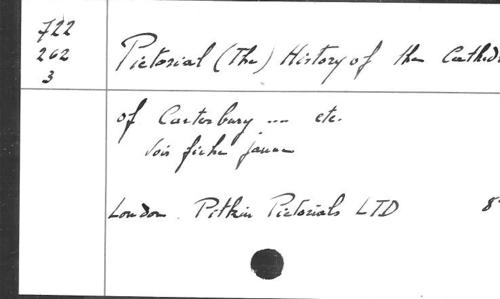 722
262
3
Pictorial (The) History of the Cathed
of Canterbury ... etc.
Voir fiche jaune
London. Pitkin Pictorials LTD 8°